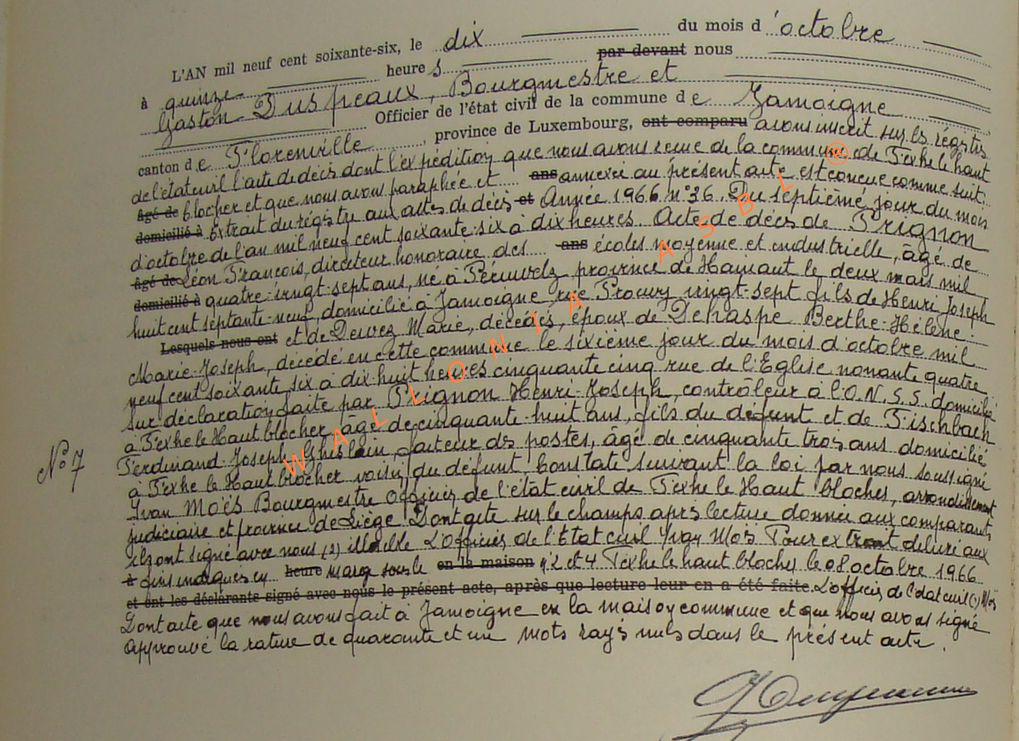 L'AN mil neuf cent soixante-six, le dix du mois d'octobre
à quinze heures par devant nous
Gaston Duspeaux, Bourgmestre et
Officier de l'état civil de la commune de Jamoigne
canton de Florenville, province de Luxembourg, ont comparu avons inscrit sur les régistres
de l'état civil l'acte de décès dont l'expédition que nous avons reçue de la commune de Fexhe le haut
âgé de clocher et que nous avons paraphée et ans annexée au présent acte est conçue comme suit:
domicilié à Extrait du régistre aux actes de décès et Année 1966 n°36. Du septième jour du mois
d'octobre de l'an mil neuf cent soixante six à dix heures. Acte de décès de Frignon
âgé de Léon François, directeur honoraire des ans écoles moyenne et industrielle, âgé de
domicilié à quatre-vingt-sept ans, né à Péruwelz province de Hainaut le deux mars mil
huit cent septante-neuf, domicilié à Jamoigne rue Procury vingt-sept fils de Henri Joseph
Lesquels nous ont et de Dewez Marie, décédés, époux de Dehaspe Berthe-Hélène-
Marie-Joseph, décédé en cette commune le sixième jour du mois d'octobre mil
neuf cent soixante six à dix-huit heures cinquante cinq rue de l'Eglise nonante quatre
sur déclaration faite par Frignon Henri-Joseph, contrôleur à l'O.N.S.S. domicilié
à Fexhe le Haut blocher, âgé de cinquante huit ans, fils du défunt et de Fischbach
N° 7 Ferdinand-Joseph-Ghislain, facteur des postes, âgé de cinquante trois ans domicilié
à Fexhe le Haut blocher voisin du défunt. Constaté suivant la loi par nous soussigné
Yvan Moës Bourgmestre Officier de l'état civil de Fexhe le Haut blocher, arrondissement
judiciaire et province de Liège Dont acte sur le champs après lecture donnée aux comparants
ils ont signé avec nous (s) illisible L'officier de l'Etat civil Yvan Moës Pour extrait délivré aux
à fins indiquées en heure marge sous le en la maison n° 2 et 4 Fexhe le haut blocher le 08 octobre 1966
et ont les déclarants signé avec nous le présent acte, après que lecture leur en a été faite. L'officier de l'état civil (s) Moës
Dont acte que nous avons fait à Jamoigne en la maison commune et que nous avons signé
Approuvé la rature de quarante et un mots rayés nuls dans le présent acte.
WALLONIA ASBL ®